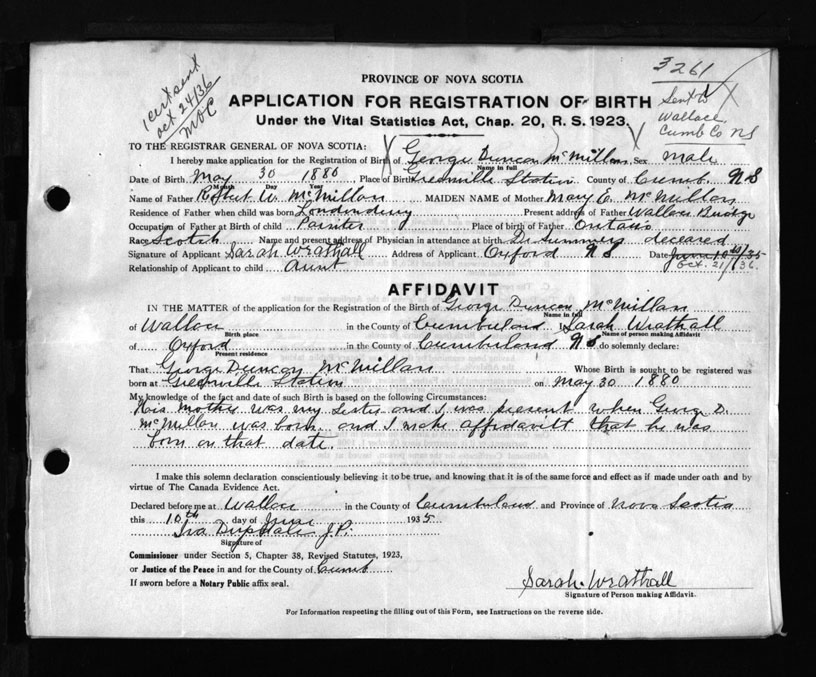 1 cert sent
Oct. 24/36
3261
Sent to
Wallace,
Cumb Co NS
PROVINCE OF NOVA SCOTIA
APPLICATION FOR REGISTRATION OF BIRTH
Under the Vital Statistics Act, Chap. 20, R. S. 1923.
TO THE REGISTRAR GENERAL OF NOVA SCOTIA:
I hereby make application for the Registration of Birth of George Duncan McMillan, Sex male
Name in full
Date of Birth May 30 1880, Place of Birth Greenville Station County of Cumb. NS
Month Day Year
Name of Father Robert W. McMillan MAIDEN NAME of Mother Mary E. McMillan
Residence of Father when child was born Londonderry Present address of Father Wallace Bridge
Occupation of Father at Birth of child Painter Place of birth of Father Ontario
Race Scotch Name and present address of Physician in attendance at birth. Dr Summers deceased
Signature of Applicant Sarah Wrathall Address of Applicant Oxford NS Date June 10th/35
Oct. 21/36.
Relationship of Applicant to child Aunt
AFFIDAVIT
IN THE MATTER of the application for the Registration of the Birth of George Duncan McMillan
Name in full
of Wallace in the County of Cumberland I, Sarah Wrathall
Birth place Name of person making Affidavit
of Oxford in the County of Cumberland NS do solemnly declare:
Present residence
That George Duncan McMillan Whose Birth is sought to be registered was
born at Greenville Station on May 30 1880
My knowledge of the fact and date of such Birth is based on the following Circumstances:
His Mother was my Sister and I was present when George D.
McMillan was born and I make affidavitt that he was
born on that date.
I make this solemn declaration conscientiously believing it to be true, and knowing that it is of the same force and effect as if made under oath and by
virtue of The Canada Evidence Act.
Declared before me at Wallace in the County of Cumberland and Province of Nova Scotia
this 10th day of June 1935
Ira J.P.
Signature of
Commissioner under Section 5, Chapter 38, Revised Statutes, 1923,
or Justice of the Peace in and for the County of Cumb
If sworn before a Notary Public affix seal.
Sarah Wrathall
Signature of Person making Affidavit.
For Information respecting the filling out of this Form, see Instructions on the reverse side.